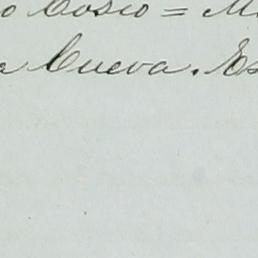 o Cosio = M
a Cueva. Es